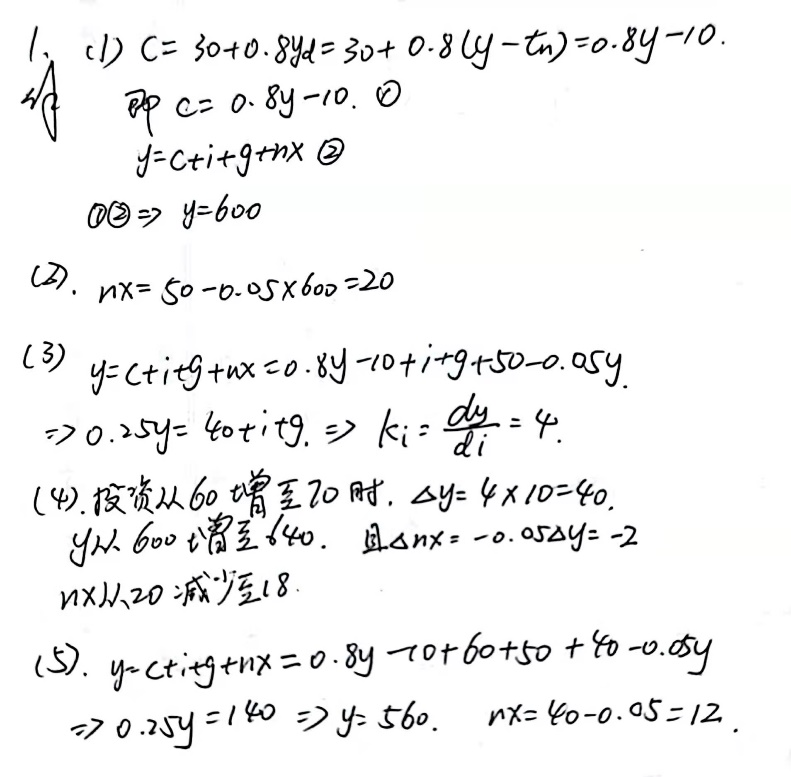 1. (1) C = 30+0.8yd = 30+ 0.8(y-tn) = 0.8y-10.
解 即 C= 0.8y-10. ①
y=c+i+g+nx ②
①②⇒ y=600
(2). nx= 50-0.05×600=20
(3) y=c+i+g+nx=0.8y-10+i+g+50-0.05y.
⇒ 0.25y= 40+i+g. ⇒ ki = dy/di = 4.
(4). 投资从60增至70时. Δy= 4×10=40.
y从 600增至640. 且Δnx= -0.05Δy= -2
nx从20减少至18.
(5). y=c+i+g+nx=0.8y-10+60+50+40-0.05y
⇒ 0.25y=140 ⇒ y= 560. nx=40-0.05=12.